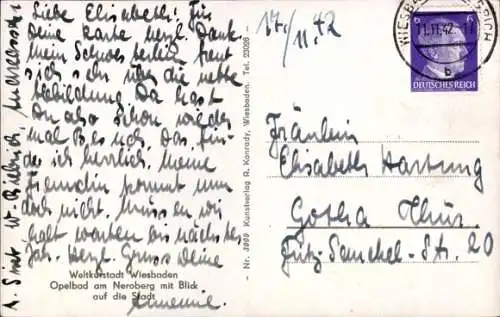 Liebe Elisabeth! Für
Deine Karte herzl. Dank.
Mein Schwesterlein freut
sich sehr über die nette
Abbildung. Da hast
Du also schon wieder
mal Besuch. Das fin-
de ich herrlich. Meine
Freundin kommt nun
doch nicht. Müssen wir
halt warten bis nächstes
Jahr. Herzl. Gruss Deine
Annemie.
Weltkurstadt Wiesbaden
Opelbad am Neroberg mit Blick
auf die Stadt
Nr. 3900 Kunstverlag R. Konrady, Wiesbaden. Tel. 23026
17./11.42
WIESBADEN
11.11.42
b
6
DEUTSCHES REICH
Fräulein
Elisabeth Hartung
Gotha Thür.
Fritz-Sauckel-Str. 20